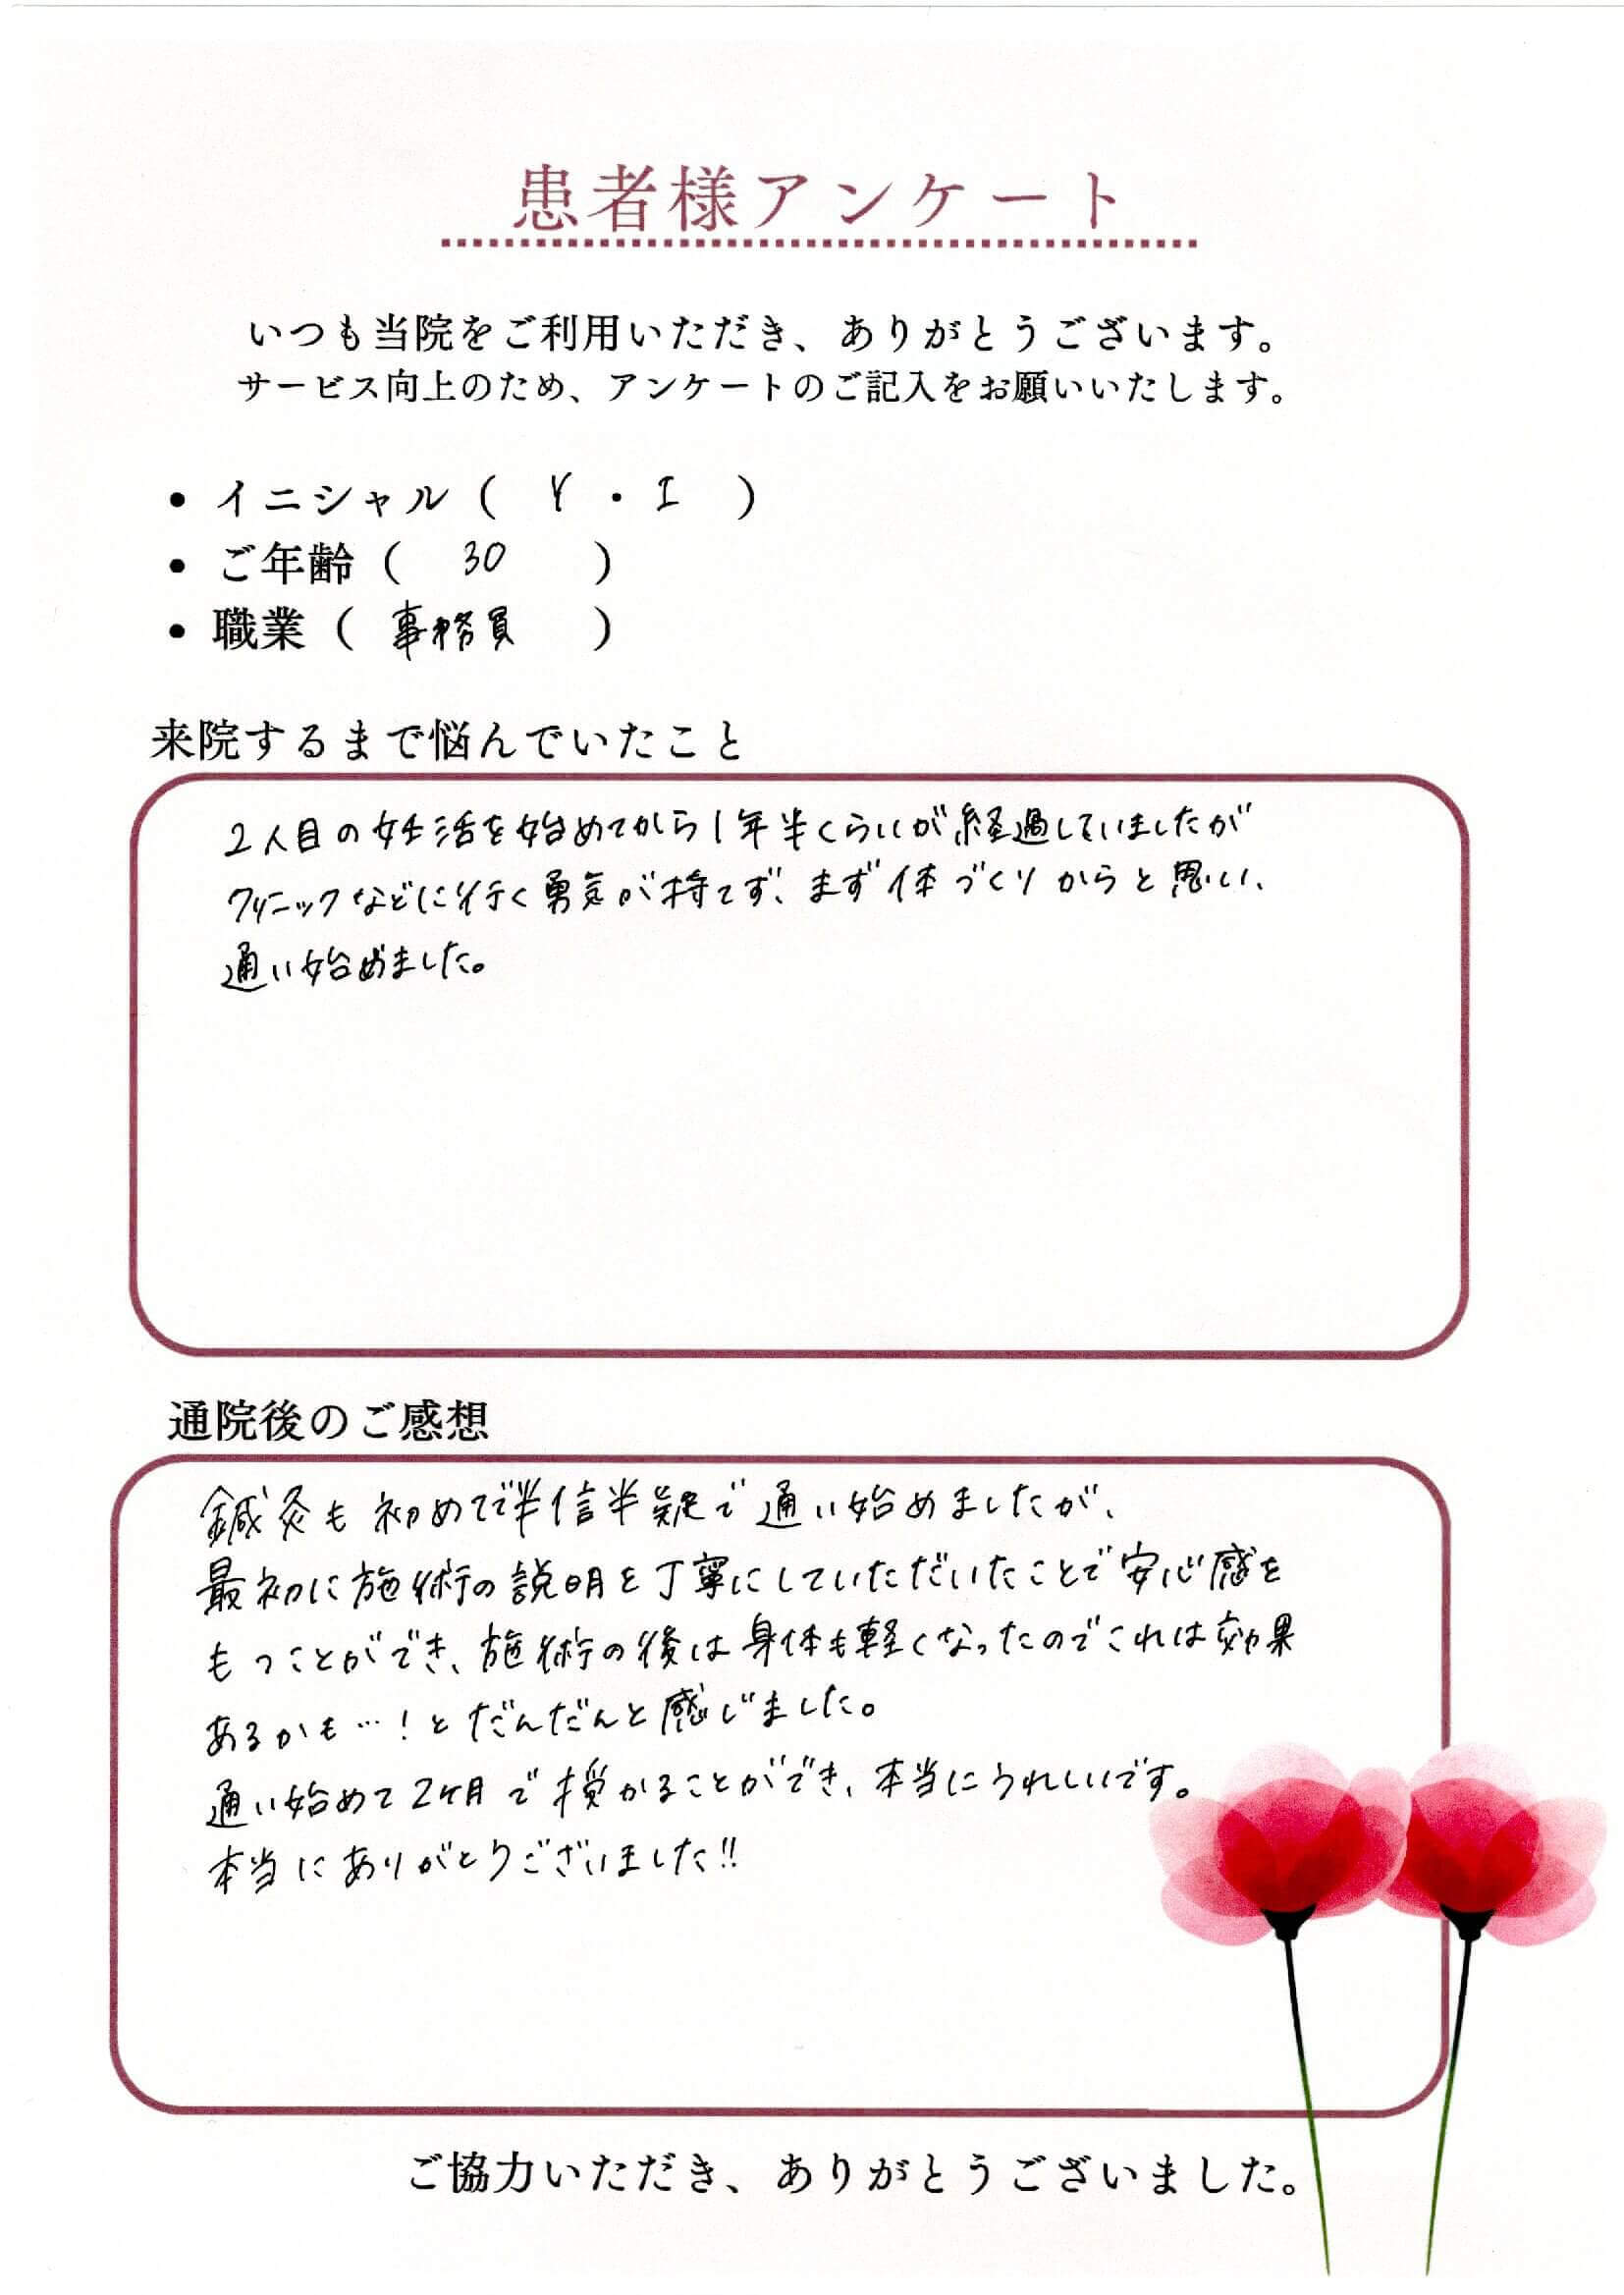 患者様アンケート
いつも当院をご利用いただき、ありがとうございます。
サービス向上のため、アンケートのご記入をお願いいたします。
• イニシャル（ Y ・ I ）
• ご年齢（ 30 ）
• 職業（ 事務員 ）
来院するまで悩んでいたこと
2人目の妊活を始めてから1年半くらいが経過していましたが
クリニックなどに行く勇気が持てず、まず体づくりからと思い、
通い始めました。
通院後のご感想
鍼灸も初めてで半信半疑で通い始めましたが、
最初に施術の説明を丁寧にしていただいたことで安心感を
もつことができ、施術の後は身体も軽くなったのでこれは効果
あるかも…！とだんだんと感じました。
通い始めて2ヶ月で授かることができ、本当にうれしいです。
本当にありがとうございました!!
ご協力いただき、ありがとうございました。